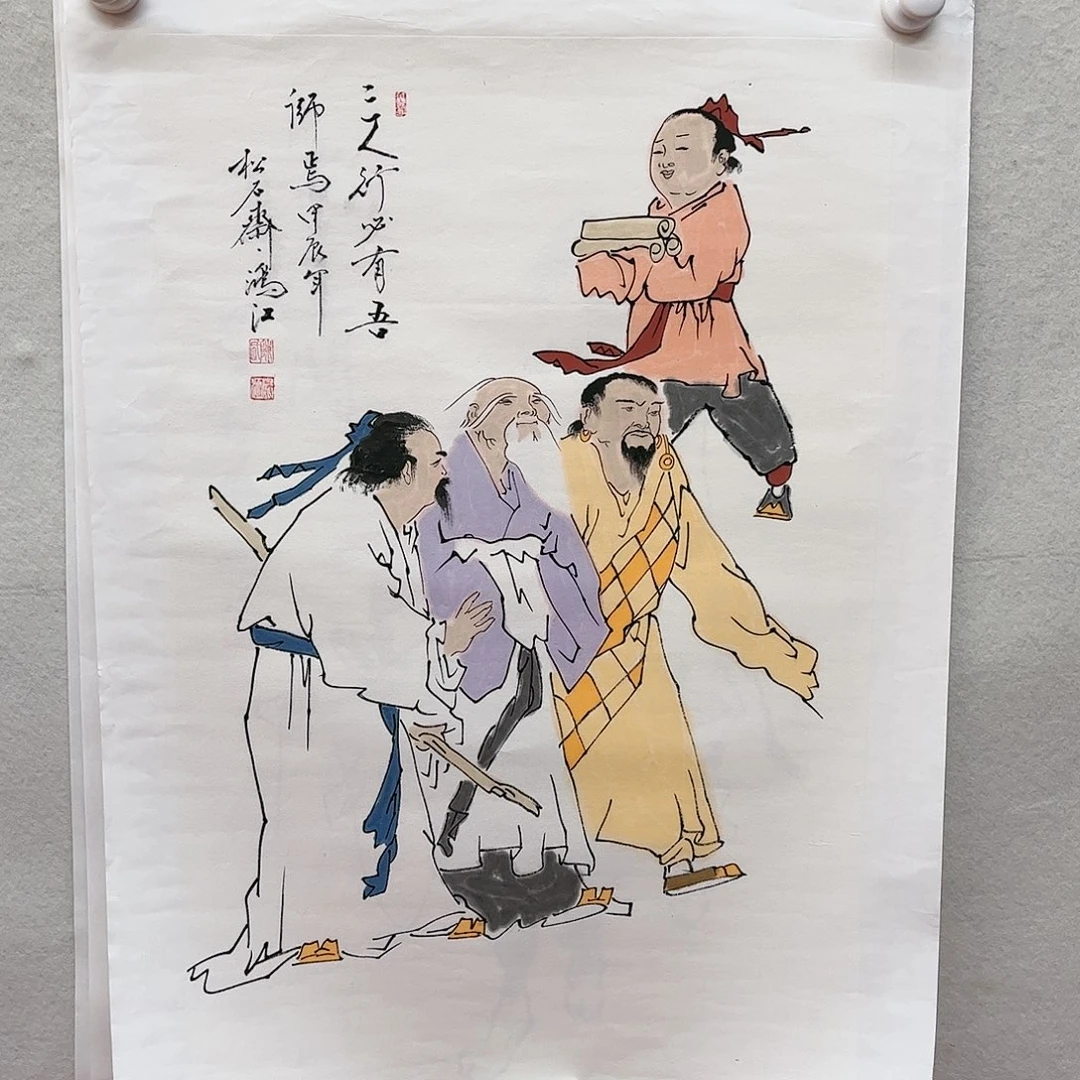 三人行必有吾
师焉甲辰年
松石斋鸿江